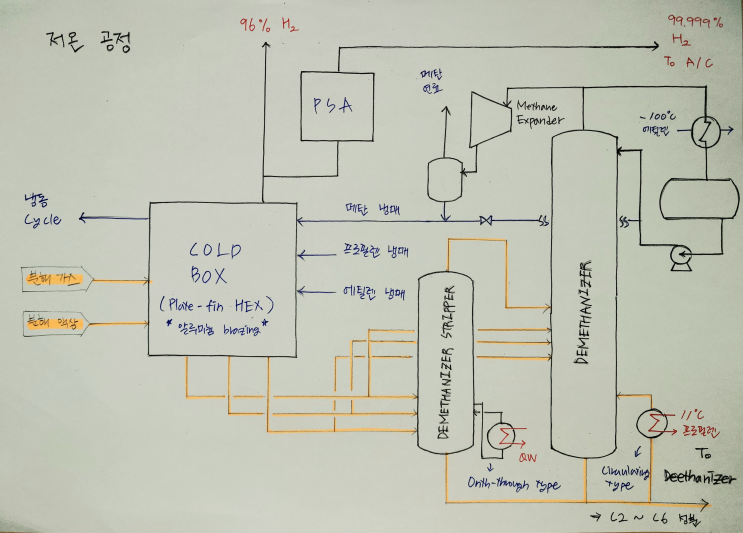 저온 공정
96% H2
99.999%
H2
To A/C
PSA
메탄
연료
Methane
Expander
-100℃
에틸렌
냉동
Cycle
메탄 냉매
COLD
BOX
(Plate-fin HEX)
* 알루미늄 brazing *
프로필렌 냉매
에틸렌 냉매
분해 가스
분해 액상
DEMETHANIZER STRIPPER
DEMETHANIZER
QW
Onth-through Type
11℃
프로필렌
Circulating
Type
To
Deethanizer
→ C2 ~ C6